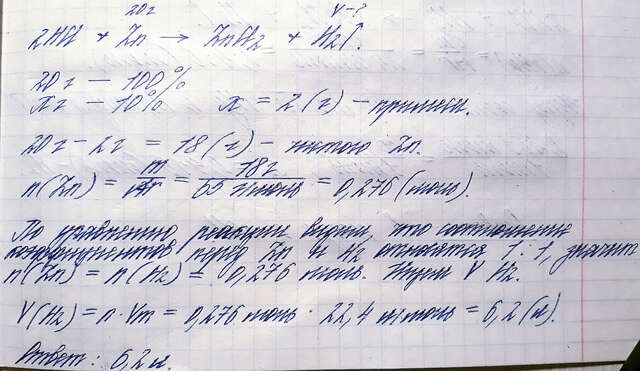 20 г V – ?
2HCl + Zn → ZnCl2 + H2↑.
20 г – 100%
x г – 10% x = 2 (г) – примеси.
20 г – 2 г = 18 (г) – чистого Zn.
n(Zn) = m/Mr = 18 г/65 г/моль = 0,276 (моль).
По уравнению реакции видим, что соотношение
коэффициентов перед Zn и H2 относятся 1 : 1, значит
n(Zn) = n(H2) = 0,276 моль. Ищем V H2.
V(H2) = n · Vm = 0,276 моль · 22,4 л/моль = 6,2 (л).
Ответ: 6,2 л.